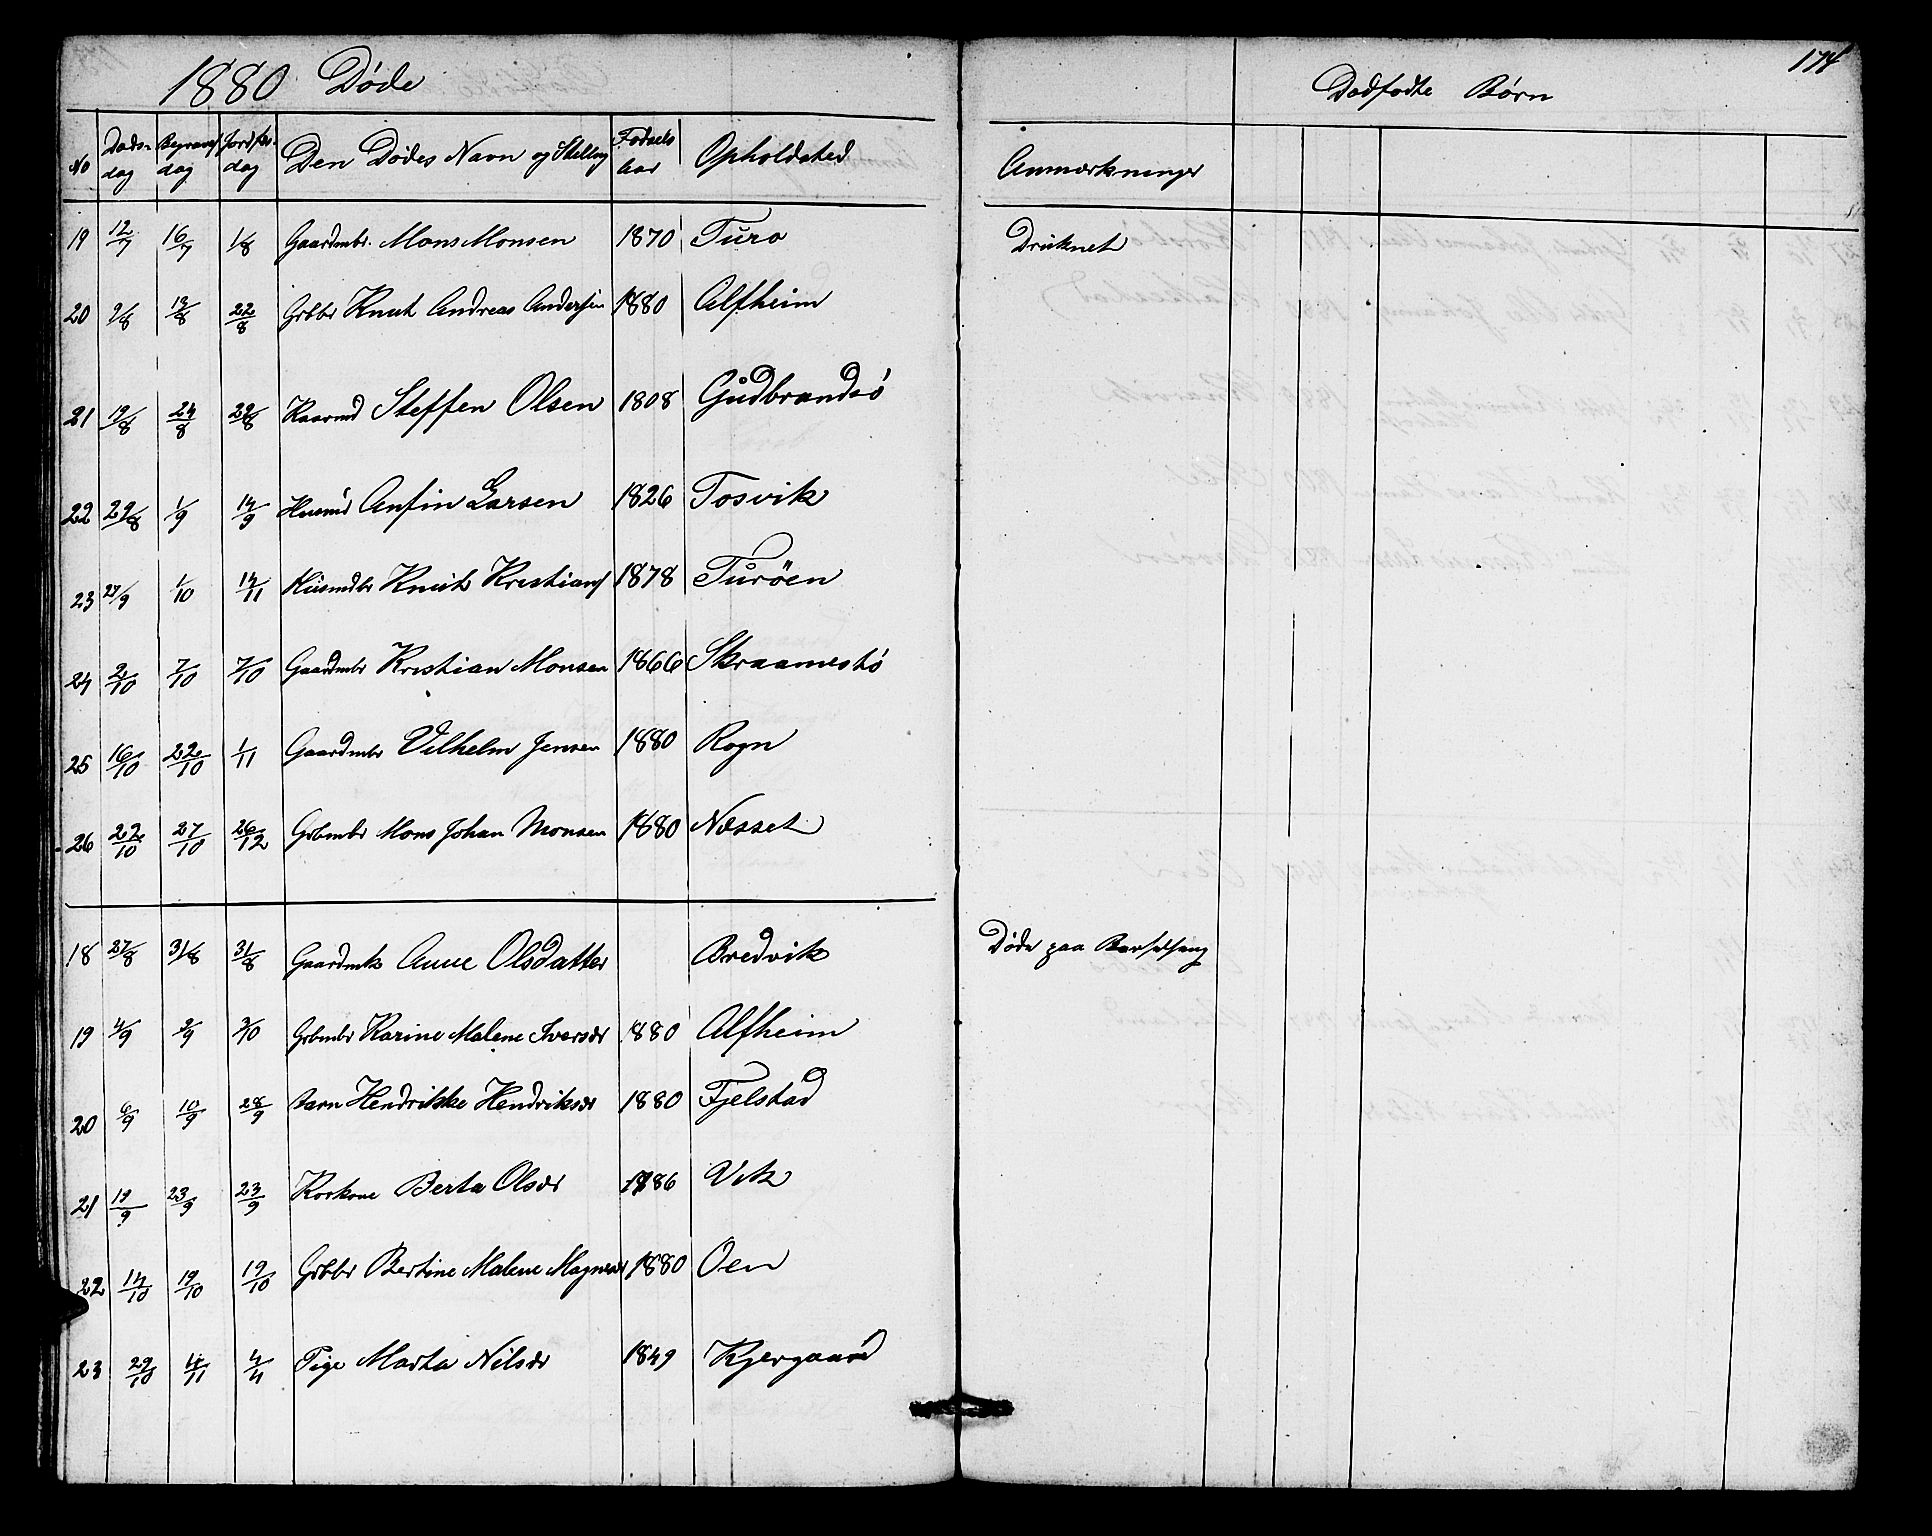 1880 Døde
No Døds- dag Begravels dag Jordfæs- dag Den Dødes Navn og Stilling Fødsels Aar Opholdsted
19 12/7 16/7 1/8 Gaardmbr. Mons Monsen 1870 Turø
20 9/8 13/8 22/8 Grbbr Knut Andreas Andersen 1880 Alfheim
21 19/8 24/8 29/8 Kaarmd Steffen Olsen 1808 Gudbrandsø
22 29/8 1/9 14/9 Husmd Anfin Larsen 1826 Tosvik
23 27/9 1/10 14/11 Husmdbr Knut Kristians 1878 Turöen
24 2/10 7/10 7/10 Gaardmbr Kristian Monsen 1866 Skraamestø
25 16/10 22/10 1/11 Gaardmbr Vilhelm Jensen 1880 Rogn
26 22/10 27/10 26/12 Grbmbr Mons Johan Monsen 1880 Nesset
18 27/8 31/8 31/8 Gaardmk Anne Olsdatter Bredvik
19 4/9 9/9 3/10 Grbmbr Karine Malene Iversdr 1880 Alfheim
20 6/9 10/9 28/9 Barn Hendrikke Hendriksdr 1880 Fjelstad
21 19/9 23/9 23/9 Korkone Berta Olsdr 1786 Vik
22 14/10 19/10 19/10 Grbbr Bertine Malene Magnesdr 1880 Oen
23 29/10 4/11 4/11 Pige Marta Nilsdr 1849 Kjergaard
174
Dødfødte Børn
Anmærkninger
Druknet
Døde paa Barselseng